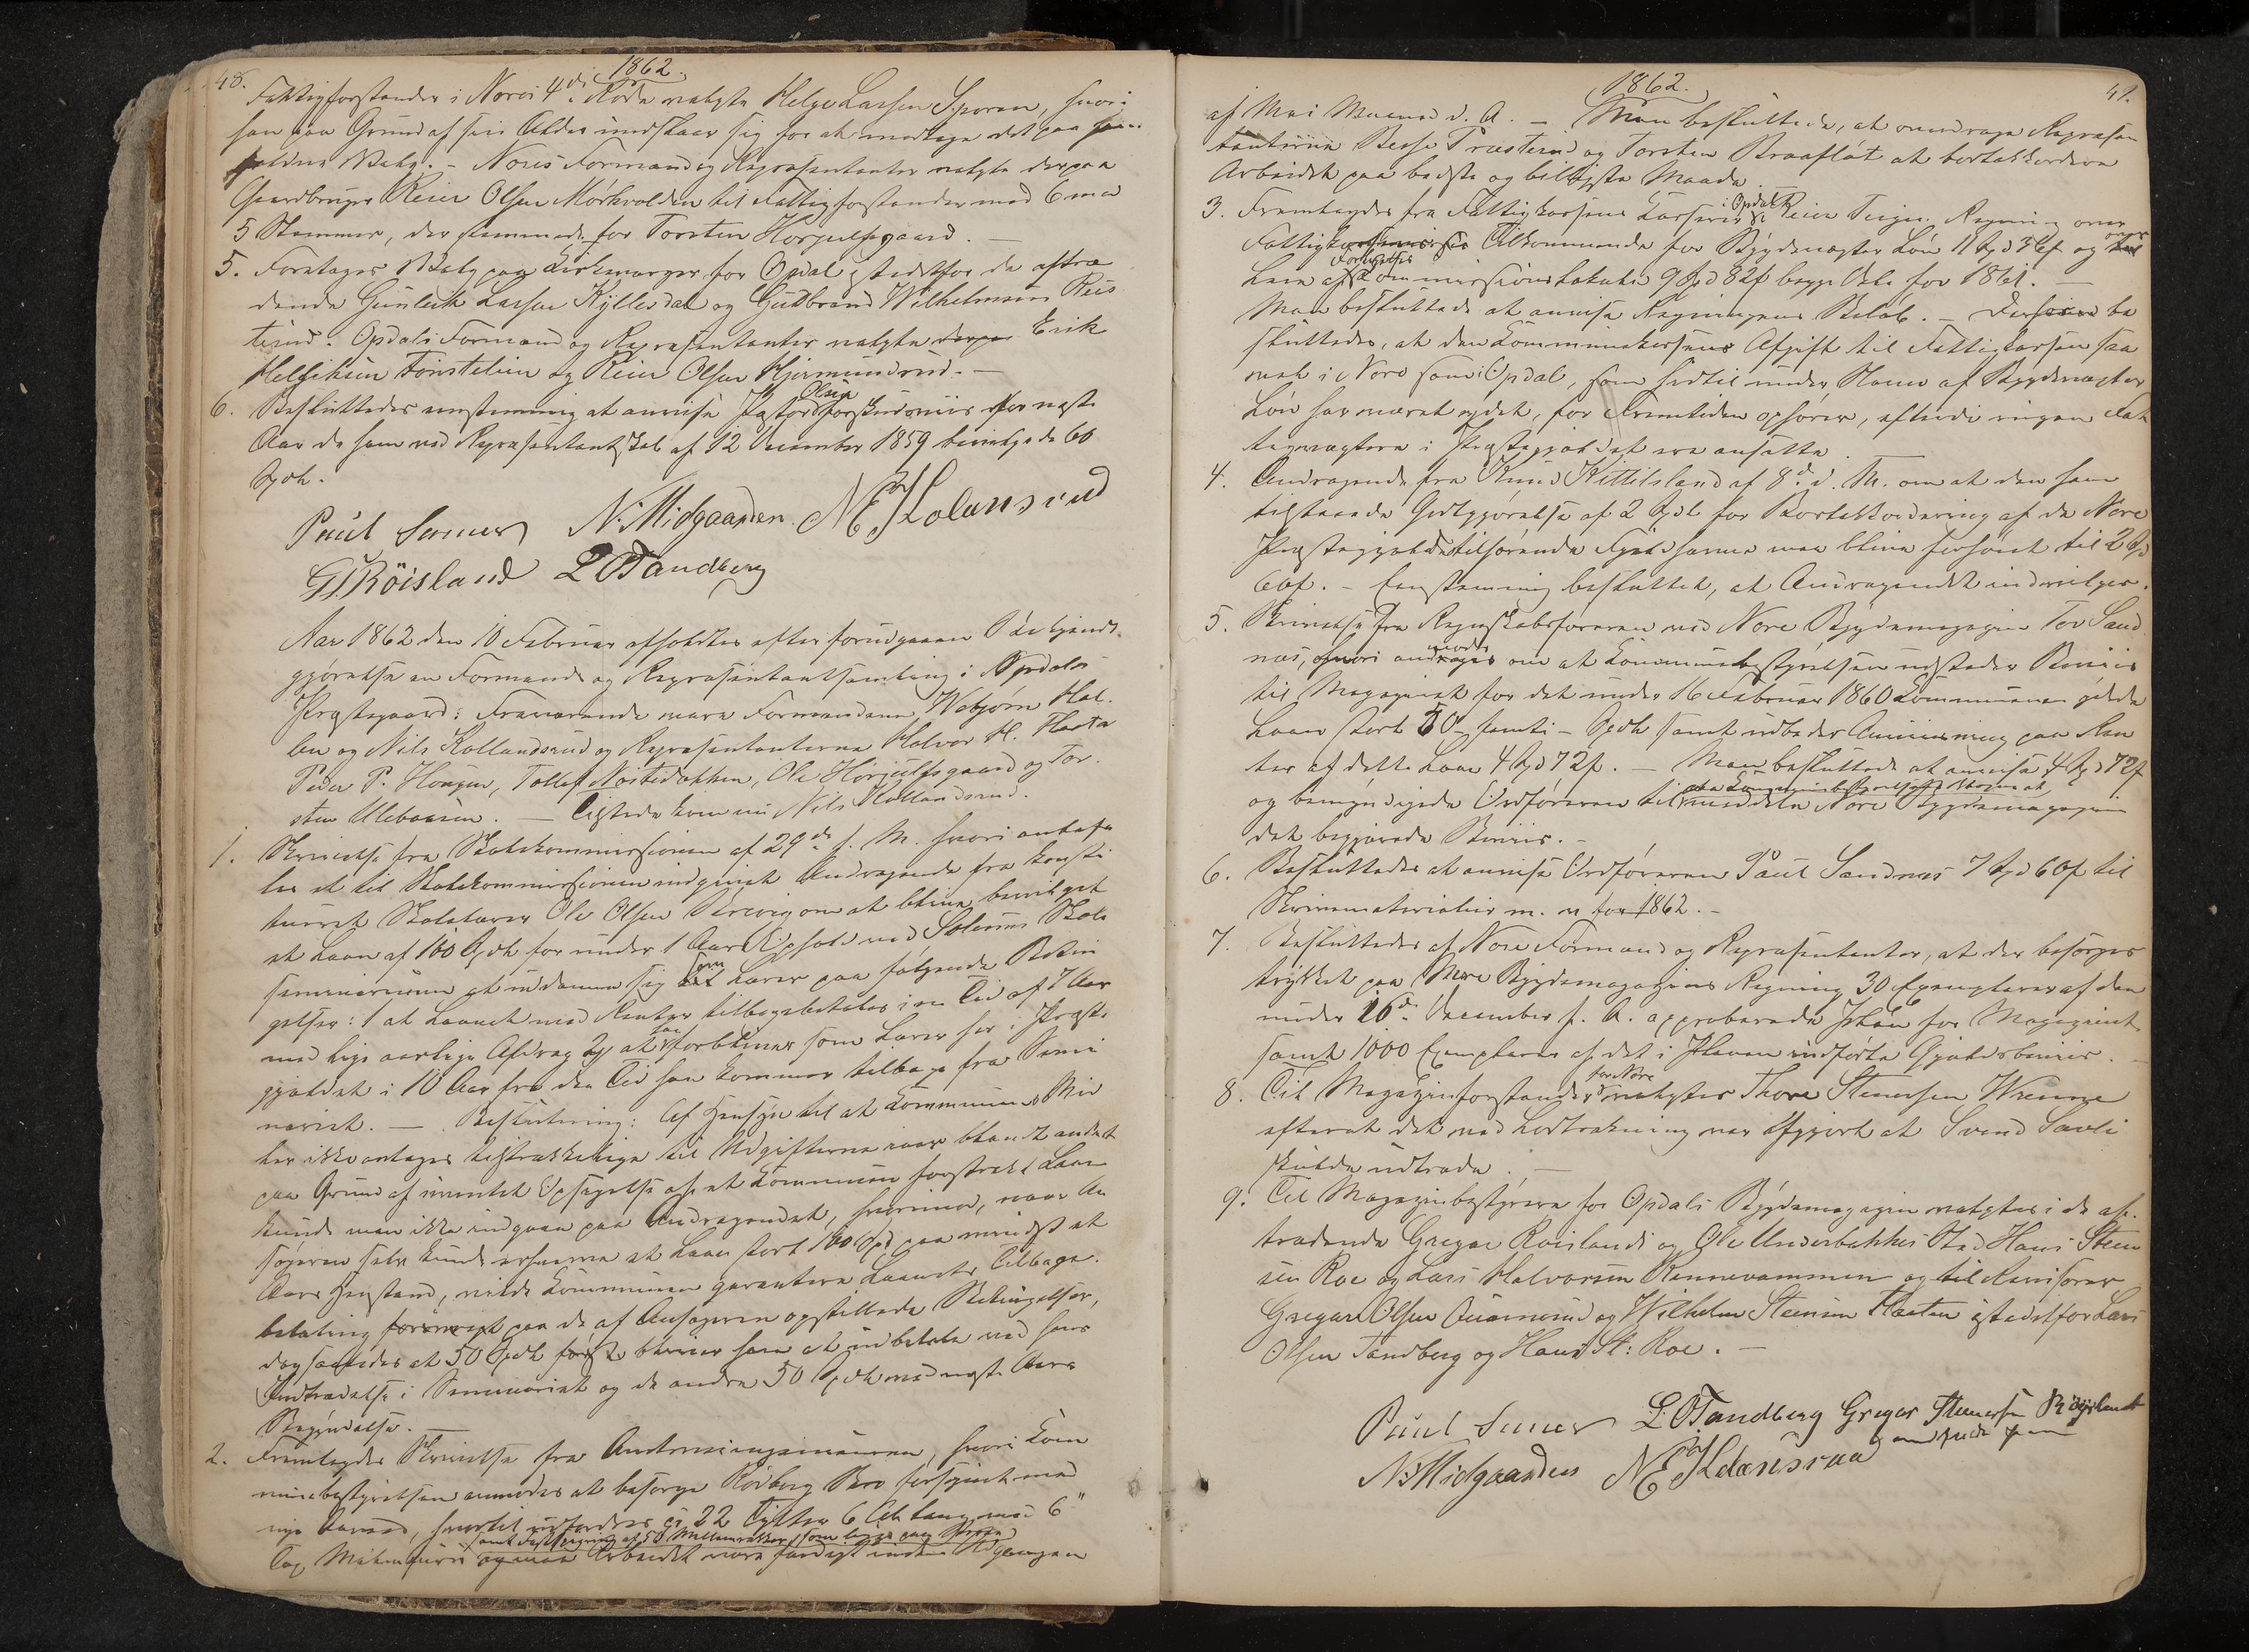 48.
1862.
Fattigforstander i Nores 4de Rode valgte Helge Larsen Sporan, hvori-
han paa Grund af sin Alder undslaar sig for at modtage det paa ham
faldne Valg. - Nores Formænd og Repræsentanter valgte derpaa
Gaardbruger Reier Olsen Mørkvolden til Fattigforstander med 6 mod
5 Stemmer, der stemmede for Torsten Horgulfsgaard. -
5. Foretages Valg paa Kirkeværger for Opdal istedetfor de aftræ
dende Gunleik Larsen Kyllesdal og Gudbrand Wilhelmsen Reis
terud. Opdals Formænd og Repræsentanter valgte derpaa Erik
Helgesen Fonstelien og Reier Olsen Hjermundrud. -
6. Besluttedes enstemmig at anvise Pastor Olsen for næste
Aar de ham ved Repræsentantskab af 12 December 1859 bevilgede 60
Spdl.
Paul Sannes N. Midgaarden. N E Kolansrud
G. S. Röisland L O Tandberg
Aar 1862 den 10 Februar afholdtes efter forudgaaen Bekjendt-
gjørelse en Formands og Repræsentantsamling i Opdals
Præstegaard: Fraværende vare Formændene Webjørn Hal-
len og Nils Kollandsrud og Repræsentanterne Halvor H.
Peder P. Hougen, Tollef Nøstebakken, Ole Horjulfsgaard og Tor-
sten Ulebaasen. - Tilstede kom nu Nils Kollandsrud.
1. Skrivelse fra Skolekommissionen af 29de f. M. hvori anbefa
les et til Skolekommissionen indgivet Andragende fra konsti
tueret Skolelærer Ole Olsen om at blive bevilget
et Laan af 100 Spdl for under 1 Aars Ophold ved Seminarium
at uddanne sig som Lærer paa følgende Betin
gelser: 1 at Laanet med Renter tilbagebetales i en Tid af 7 Aar
med lige aarlige Afdrag 2) at han forbliver som Lærer her i Præste
gjældet i 10 Aar fra den Tid han kommer tilbage fra Semi
nariet. - Beslutning: Af Hensyn til at Kommunens Mid
ler ikke antages tilstrækkelige til Udgifterne iaar blandt andet
paa Grund af ventet Opsigelse af et Kommunen forstrakt Laan
kunde man ikke indgaa paa Andragendet, hvorimod, naar An
søgeren selv kunde erhverve et Laan stort 100 Spd paa mindst et
Aars Henstand, vilde Kommunen garantere Laanets Tilbage-
betaling paa de af Ansøgeren opstillede Betingelser,
dog saaledes at 50 Spdl bliver ham at udbetale ved hans
Indtrædelse i Seminariet og de andre 50 Spdl ved næste Aars
Begyndelse. -
2. Fremlagdes Skrivelse fra Amtsveiingeniøren, hvori Kom
munebestyrelsen anmodes at besørge Rødberg Bro forsynet med
nye, hvortil udfordres 22 Tylter 6 Al. lange med 6"
samt Fastspigring af 50 som ligge paa Broen
Top og maa Arbeidet være færdigt inden Udgangen
1862.
41.
af Mai Maaned d. A. - Man besluttede, at overdrage Repræsen
tanterne Besse Træsterud og Torsten Braaflåt at bortakkordere
Arbeidet paa bedste og billigste Maade.
3. Fremlagdes fra Fattigkassens Kasserer i Opdal Reier Regning over
Fattigkassens Tilkommende for Bygdevægter Løn 11 Spd 36 f og
Leie af Forligelseskommissionslokale 9 Spd 82 f begge Dele for 1861. -
Man besluttede at anvise Regningens Beløb. - be
sluttedes, at den Kommunekassens Afgift til Fattigkassen saa
vel i Nore som i Opdal, som hidtil under Navn af Bygdevægter
Løn har været ydet, for Fremtiden ophører, eftersom ingen Fat
tigvægtere i Præstegjeldet ere ansatte.
4. Andragende fra Knud Kittilsland af 8de d. M. om at den ham
tilstaaede Godtgjørelse af 2 Spdl for Bortakkordering af de Nore
Præstegjeld tilhørende maa blive forhøiet til 2 Spd
60 f. - Enstemmig besluttet, at Andragendet indvilges.
5. Skrivelse fra Regnskabsføreren ved Nore Bygdemagazin Tov Sand
nes, hvori anmodes om at Kommunebestyrelsen udsteder Bevis
til Magazinet for det under 16 Februar 1860 Kommunen ydede
Laan stort 50 - femti - Spdl samt udbeder Anvisning paa Ren
ter af dette Laan 4 Spd 72 f. - Man besluttede at anvise 4 Spd 72 f
og bemyndigede Ordføreren til paa Kommunebestyrelsens Vegne at
meddele Nore Bygdemagazin
det begjærede Bevis. -
6. Besluttedes at anvise Ordføreren Paul Sandnes 7 Spd 60 f til
Skrivematerialier m. v. for 1862. -
7. Besluttedes af Nore Formænd og Repræsentanter, at der besørges
trykket paa Nore Bygdemagazins Regning 30 Exemplarer af den
under 16de December f. A. approberede Plan for Magazinet
samt 1000 Exemplarer af det i Planen indførte Gjældsbevis. -
8. Til Magazinforstander for Nore valgtes Thore Steensen Wrenne
efterat det ved Lodtrækning var afgjort at Svend Søvli
skulde udtræde. -
9. Til Magazinbestyrere for Opdals Bygdemagazin valgtes i de af-
trædende Gregar Roislands og Ole Underbakkes Sted Hans Steen
sen Roe og Lars Halvorsen Rennevammen og til Revisorer
Gregar Olsen og Wilhelm Steensen Flaaten istedetfor Lars
Olsen Tandberg og Hans St: Roe. -
Paul Sannes L. O Tandberg Gregar Steenersen Röysland
N. Midgaarden N E Kolansraa